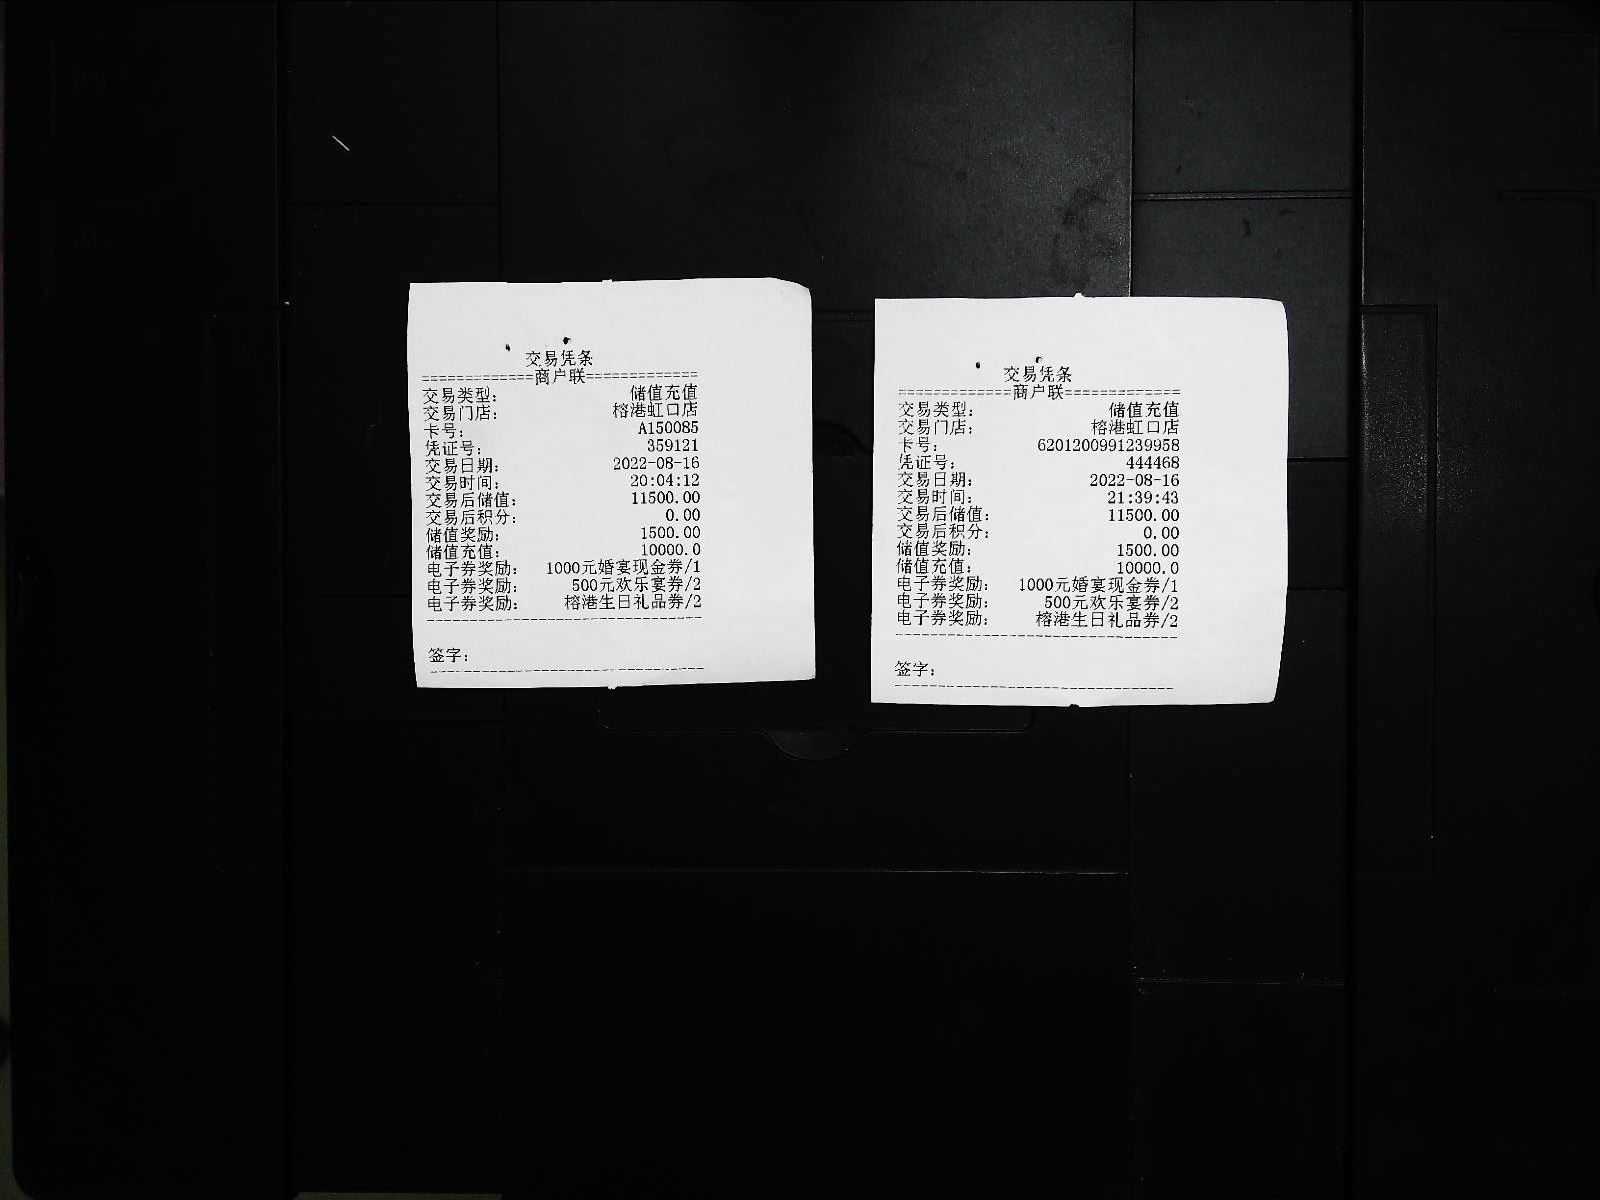 交易凭条
============商户联============
交易类型: 储值充值
交易门店: 榕港虹口店
卡号: A150085
凭证号: 359121
交易日期: 2022-08-16
交易时间: 20:04:12
交易后储值: 11500.00
交易后积分: 0.00
储值奖励: 1500.00
储值充值: 10000.0
电子券奖励: 1000元婚宴现金券/1
电子券奖励: 500元欢乐宴券/2
电子券奖励: 榕港生日礼品券/2
--------------------------------
签字:
--------------------------------
交易凭条
============商户联============
交易类型: 储值充值
交易门店: 榕港虹口店
卡号: 6201200991239958
凭证号: 444468
交易日期: 2022-08-16
交易时间: 21:39:43
交易后储值: 11500.00
交易后积分: 0.00
储值奖励: 1500.00
储值充值: 10000.0
电子券奖励: 1000元婚宴现金券/1
电子券奖励: 500元欢乐宴券/2
电子券奖励: 榕港生日礼品券/2
--------------------------------
签字:
--------------------------------